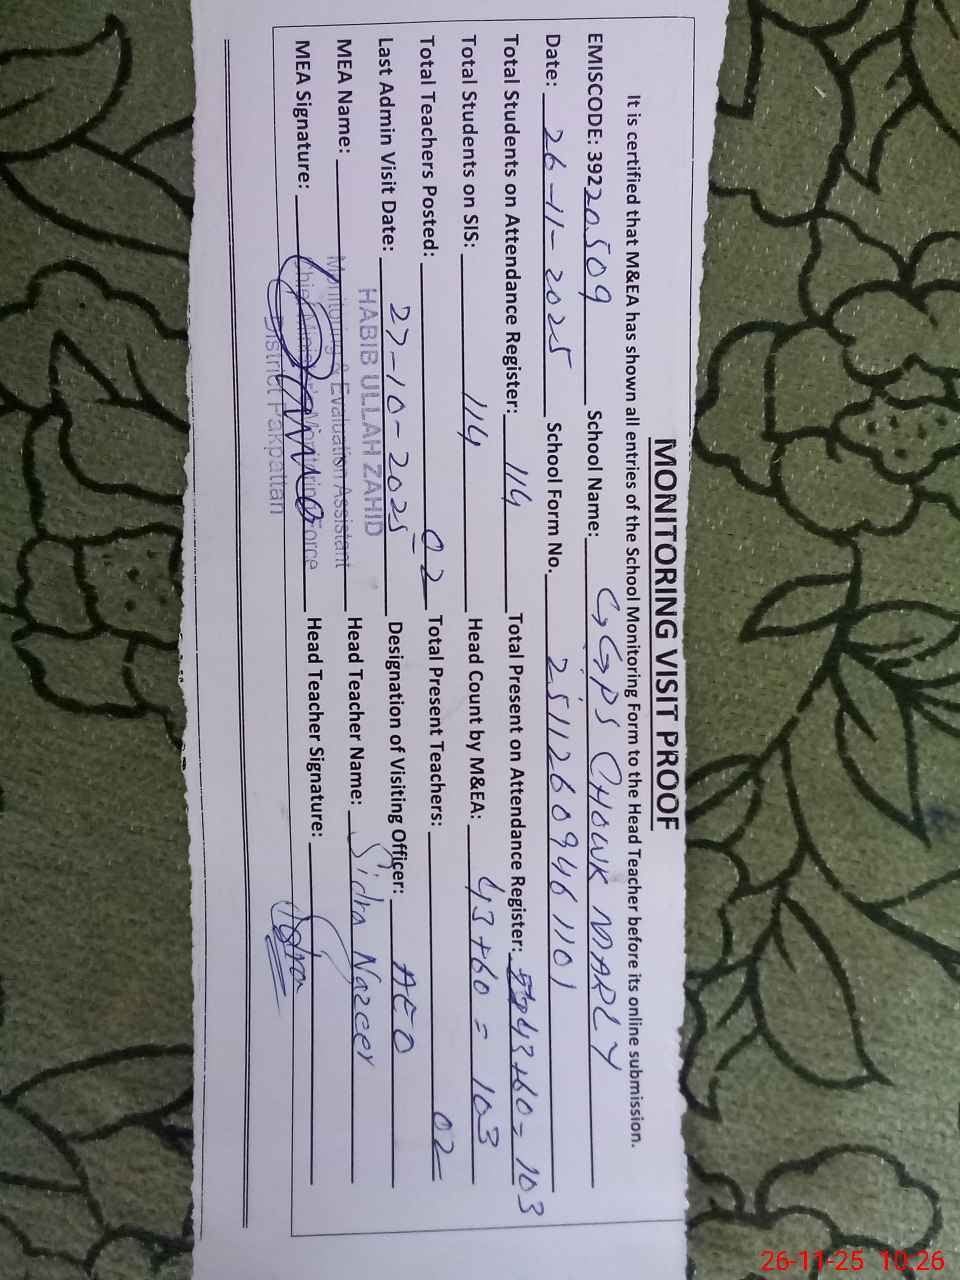 MONITORING VISIT PROOF
It is certified that M&EA has shown all entries of the School Monitoring Form to the Head Teacher before its online submission.
EMISCODE: 39220509 School Name: GGPS CHOWK MARLY
Date: 26-11-2025 School Form No. 25112609461101
Total Students on Attendance Register: 114 Total Present on Attendance Register: 43+60=103
Total Students on SIS: 114 Head Count by M&EA: 43+60=103
Total Teachers Posted: 02 Total Present Teachers: 02
Last Admin Visit Date: 27-10-2025 Designation of Visiting Officer: AEO
HABIB ULLAH ZAHID
MEA Name: Monitoring & Evaluation Assistant Head Teacher Name: Sidra Nazeer
MEA Signature: Chief Minister's Monitoring Force Head Teacher Signature: Sidra
District Pakpattan
26-11-25 10:26